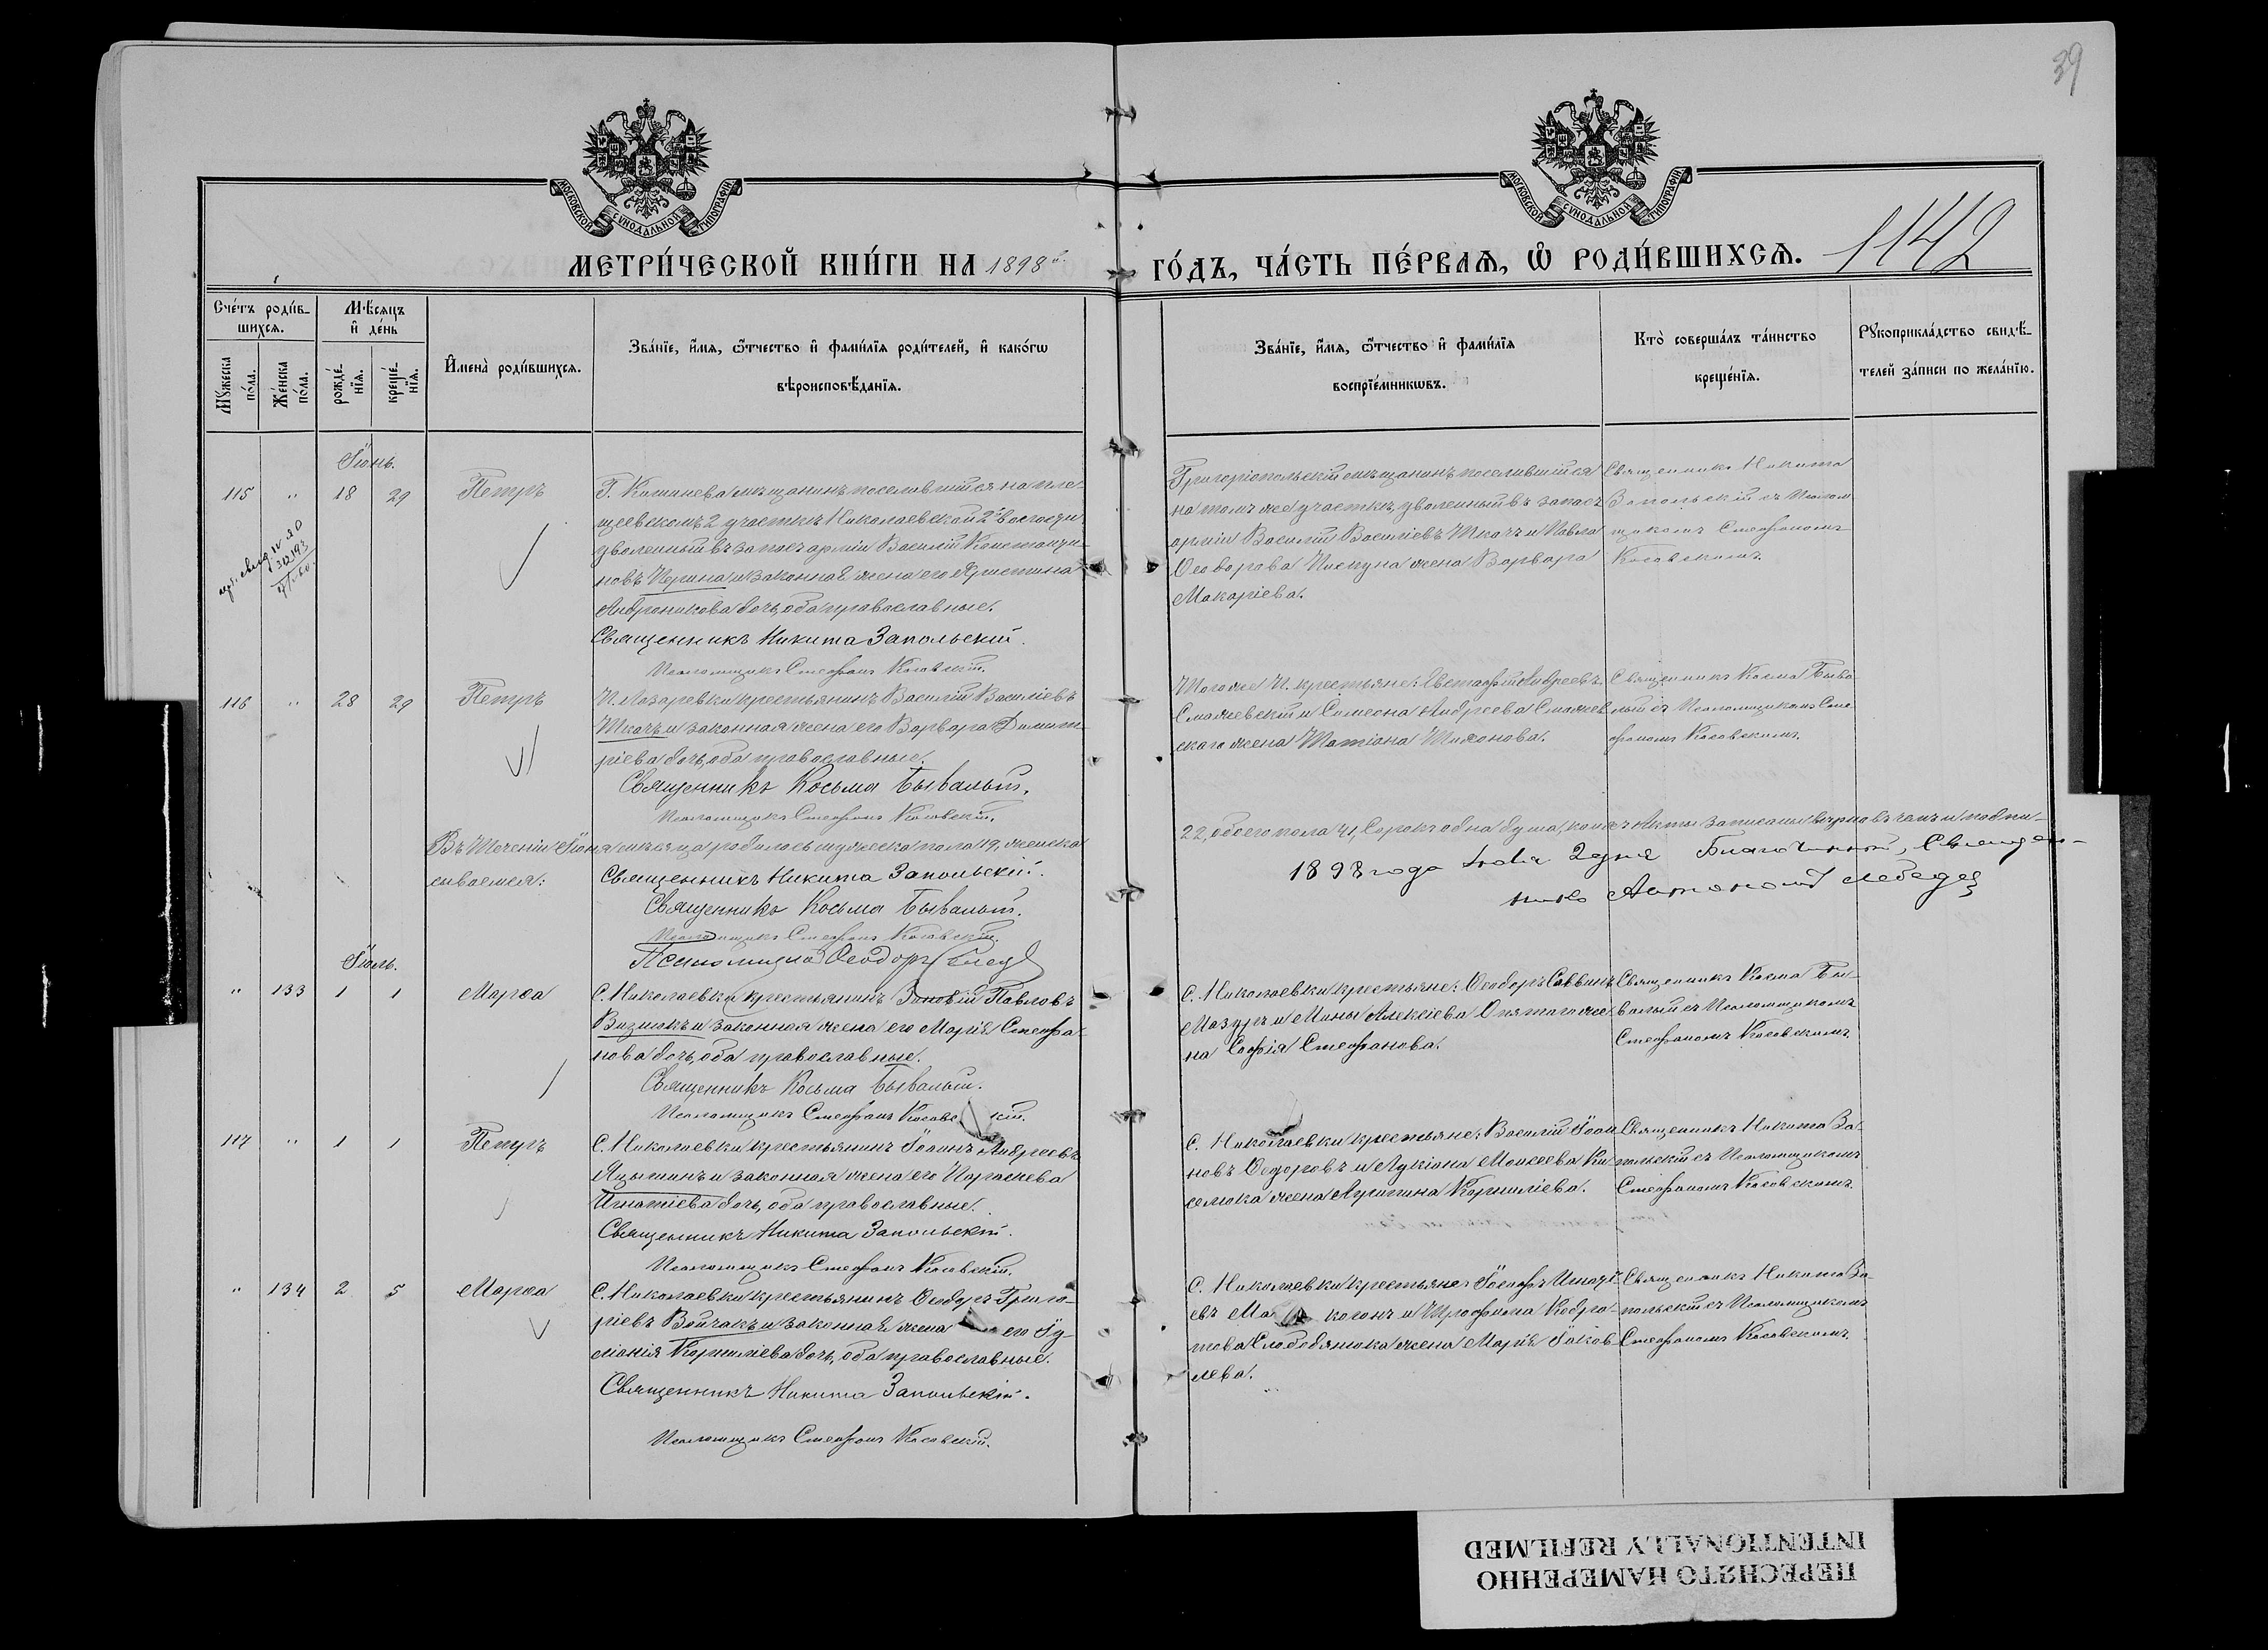 39
МОСКОВСКОЙ СѴНОДАЛЬНОЙ ТИПОГРАФІИ.
МОСКОВСКОЙ СѴНОДАЛЬНОЙ ТИПОГРАФІИ.
МЕТРИ́ЧЕСКОЙ КНИ́ГИ НА 1898й
ГО́ДЪ, ЧА́СТЬ ПЕ́РВАѦ, Ѽ РОДИ́ВШИХСѦ.
1142
Сче́тъ роди́в-
шихсѧ.
Мꙋ́жеска по́ла.
Же́нска по́ла.
Мѣ́сяцъ
и҆ де́нь
рожде́-
нїѧ.
креще́-
нїѧ.
И҆мена̀ роди́вшихсѧ.
Зва́нїе, и҆́мѧ, ѻ҆́тчество и҆ фами́лїѧ роди́телей, и҆ како́гѡ
вѣроисповѣ́данїѧ.
Зва́нїе, и҆́мѧ, ѻ҆́тчество и҆ фами́лїѧ
воспрїе́мникѡвъ.
Кто̀ соверша́лъ та́инство
креще́нїѧ.
Рꙋкоприкла́дство свидѣ́-
телей за́писи по жела́нїю.
Іюнь.
115 " 18 29 Петръ
Г. Кишинева мѣщанинъ поселившійся на пле-
щеевскомъ 2 участкѣ Николаевской 2й волости
уволенный въ запасъ арміи Василій Константи-
новъ Перина и законная жена его Христина
Андроникова дочь, оба православные.
Священникъ Никита Запольскій.
Псаломщикъ Стефанъ Косовскій.
Григоріопольскій мѣщанинъ поселившійся
на томъ же участкѣ, уволенный въ запасъ
арміи Василій Василіевъ Ткачъ и Павла
Ѳеодорова жена Варвара
Макаріева.
Священникъ Никита
Запольскій съ Псалом-
щикомъ Стефаномъ
Косовскимъ.
116 " 28 29 Петръ
П. Лазаревки крестьянинъ Василій Василіевъ
Ткачъ и законная жена его Варвара Димит-
ріева дочь, оба православные.
Священникъ Косьма Бывалый.
Псаломщикъ Стефанъ Косовскій.
Того же П. крестьяне: Евстафій Андреевъ
Смачевскій и Симеона Андреева Смачев-
скаго жена Татіана Тихонова.
Священникъ Косма Быва-
лый съ Псаломщикомъ Сте-
фаномъ Косовскимъ.
Въ теченіи Іюня мѣсяца родилось мужеска пола 19, женска
22, обоего пола 41, Сорокъ одна душа, коихъ Акты записаны вѣрно въ чемъ и подпи-
сываемся:
Священникъ Никита Запольскій.
Священникъ Косьма Бывалый.
Псаломщикъ Стефанъ Косовскій.
Псаломщикъ Ѳеодоръ
1898 года Іюля 2 дня Благочинный, Священ-
никъ Автономъ Лебедев
Іюль.
" 133 1 1 Марѳа
С. Николаевки крестьянинъ Зиновій Павловъ
Визнюкъ и законная жена его Марія Стефа-
нова дочь, оба православные.
Священникъ Косьма Бывалый.
Псаломщикъ Стефанъ Косовскій.
С. Николаевки крестьяне: Ѳеодоръ Саввинъ
Мазуръ и Мины Алексіева Опятаго же-
на Софія Стефанова.
Священникъ Косма Бы-
валый съ Псаломщикомъ
Стефаномъ Косовскимъ.
117 " 1 1 Петръ
С. Николаевки крестьянинъ Іоаннъ Андреевъ
Яцышинъ и законная жена его Параскева
Игнатіева дочь, оба православные.
Священникъ Никита Запольскій.
Псаломщикъ Стефанъ Косовскій.
С. Николаевки крестьяне: Василій Іоан-
новъ Ѳедоровъ и Лукіана Моисеева Ки-
селюка жена Агрипина Корниліева.
Священникъ Никита За-
польскій съ Псаломщикомъ
Стефаномъ Косовскимъ.
" 134 2 5 Марѳа
С. Николаевки крестьянинъ Ѳеодоръ Григо-
ріевъ Войчакъ и законная жена его Іу-
ліанія Корниліева дочь, оба православные.
Священникъ Никита Запольскій.
Псаломщикъ Стефанъ Косовскій.
С. Николаевки крестьяне: Іосифъ
и Трофима Кодра-
това Слободянюка жена Марія Іаков-
лева.
Священникъ Никита За-
польскій съ Псаломщикомъ
Стефаномъ Косовскимъ.
ПЕРЕСНЯТО НАМЕРЕННО
INTENTIONALLY REFILMED